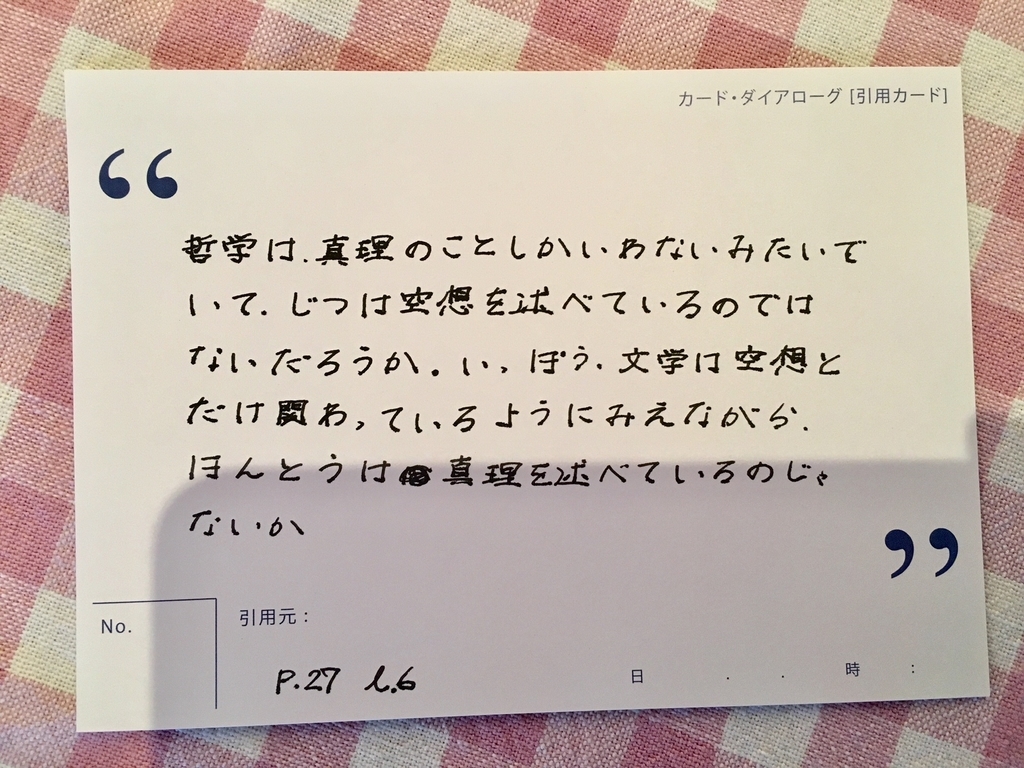 カード・ダイアローグ [引用カード]
“
哲学は、真理のことしかいわないみたいで
いて、じつは空想を述べているのでは
ないだろうか。いっぽう、文学は空想と
だけ関わっているようにみえながら、
ほんとうは真理を述べているのじゃ
ないか
”
No.
引用元：
P.27 l.6
日 . . 時 :